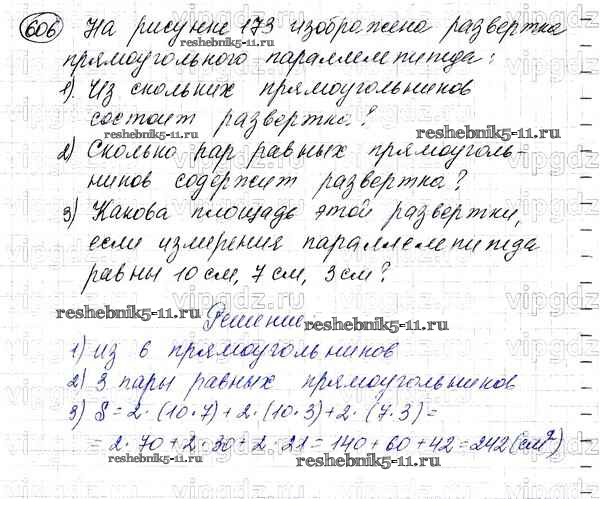 606 На рисунке 173 изображена развертка
прямоугольного параллелепипеда:
1). Из скольких прямоугольников
состоит развертка?
2) Сколько пар равных прямоуголь-
ников содержит развертка?
3) Какова площадь этой развертки,
если измерения параллелепипеда
равны 10 см, 7 см, 3 см?
Решение.
1) из 6 прямоугольников
2) 3 пары равных прямоугольников
3) S = 2·(10·7)+2·(10·3)+2·(7·3)=
= 2·70+2·30+2·21=140+60+42=242(см²)
reshebnik5-11.ru
reshebnik5-11.ru
reshebnik5-11.ru
reshebnik5-11.ru
reshebnik5-11.ru
vipgdz.ru